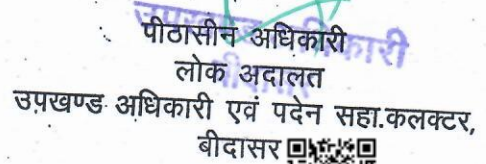 पीठासीन अधिकारी
लोक अदालत
उपखण्ड अधिकारी एवं पदेन सहा.कलक्टर,
बीदासर